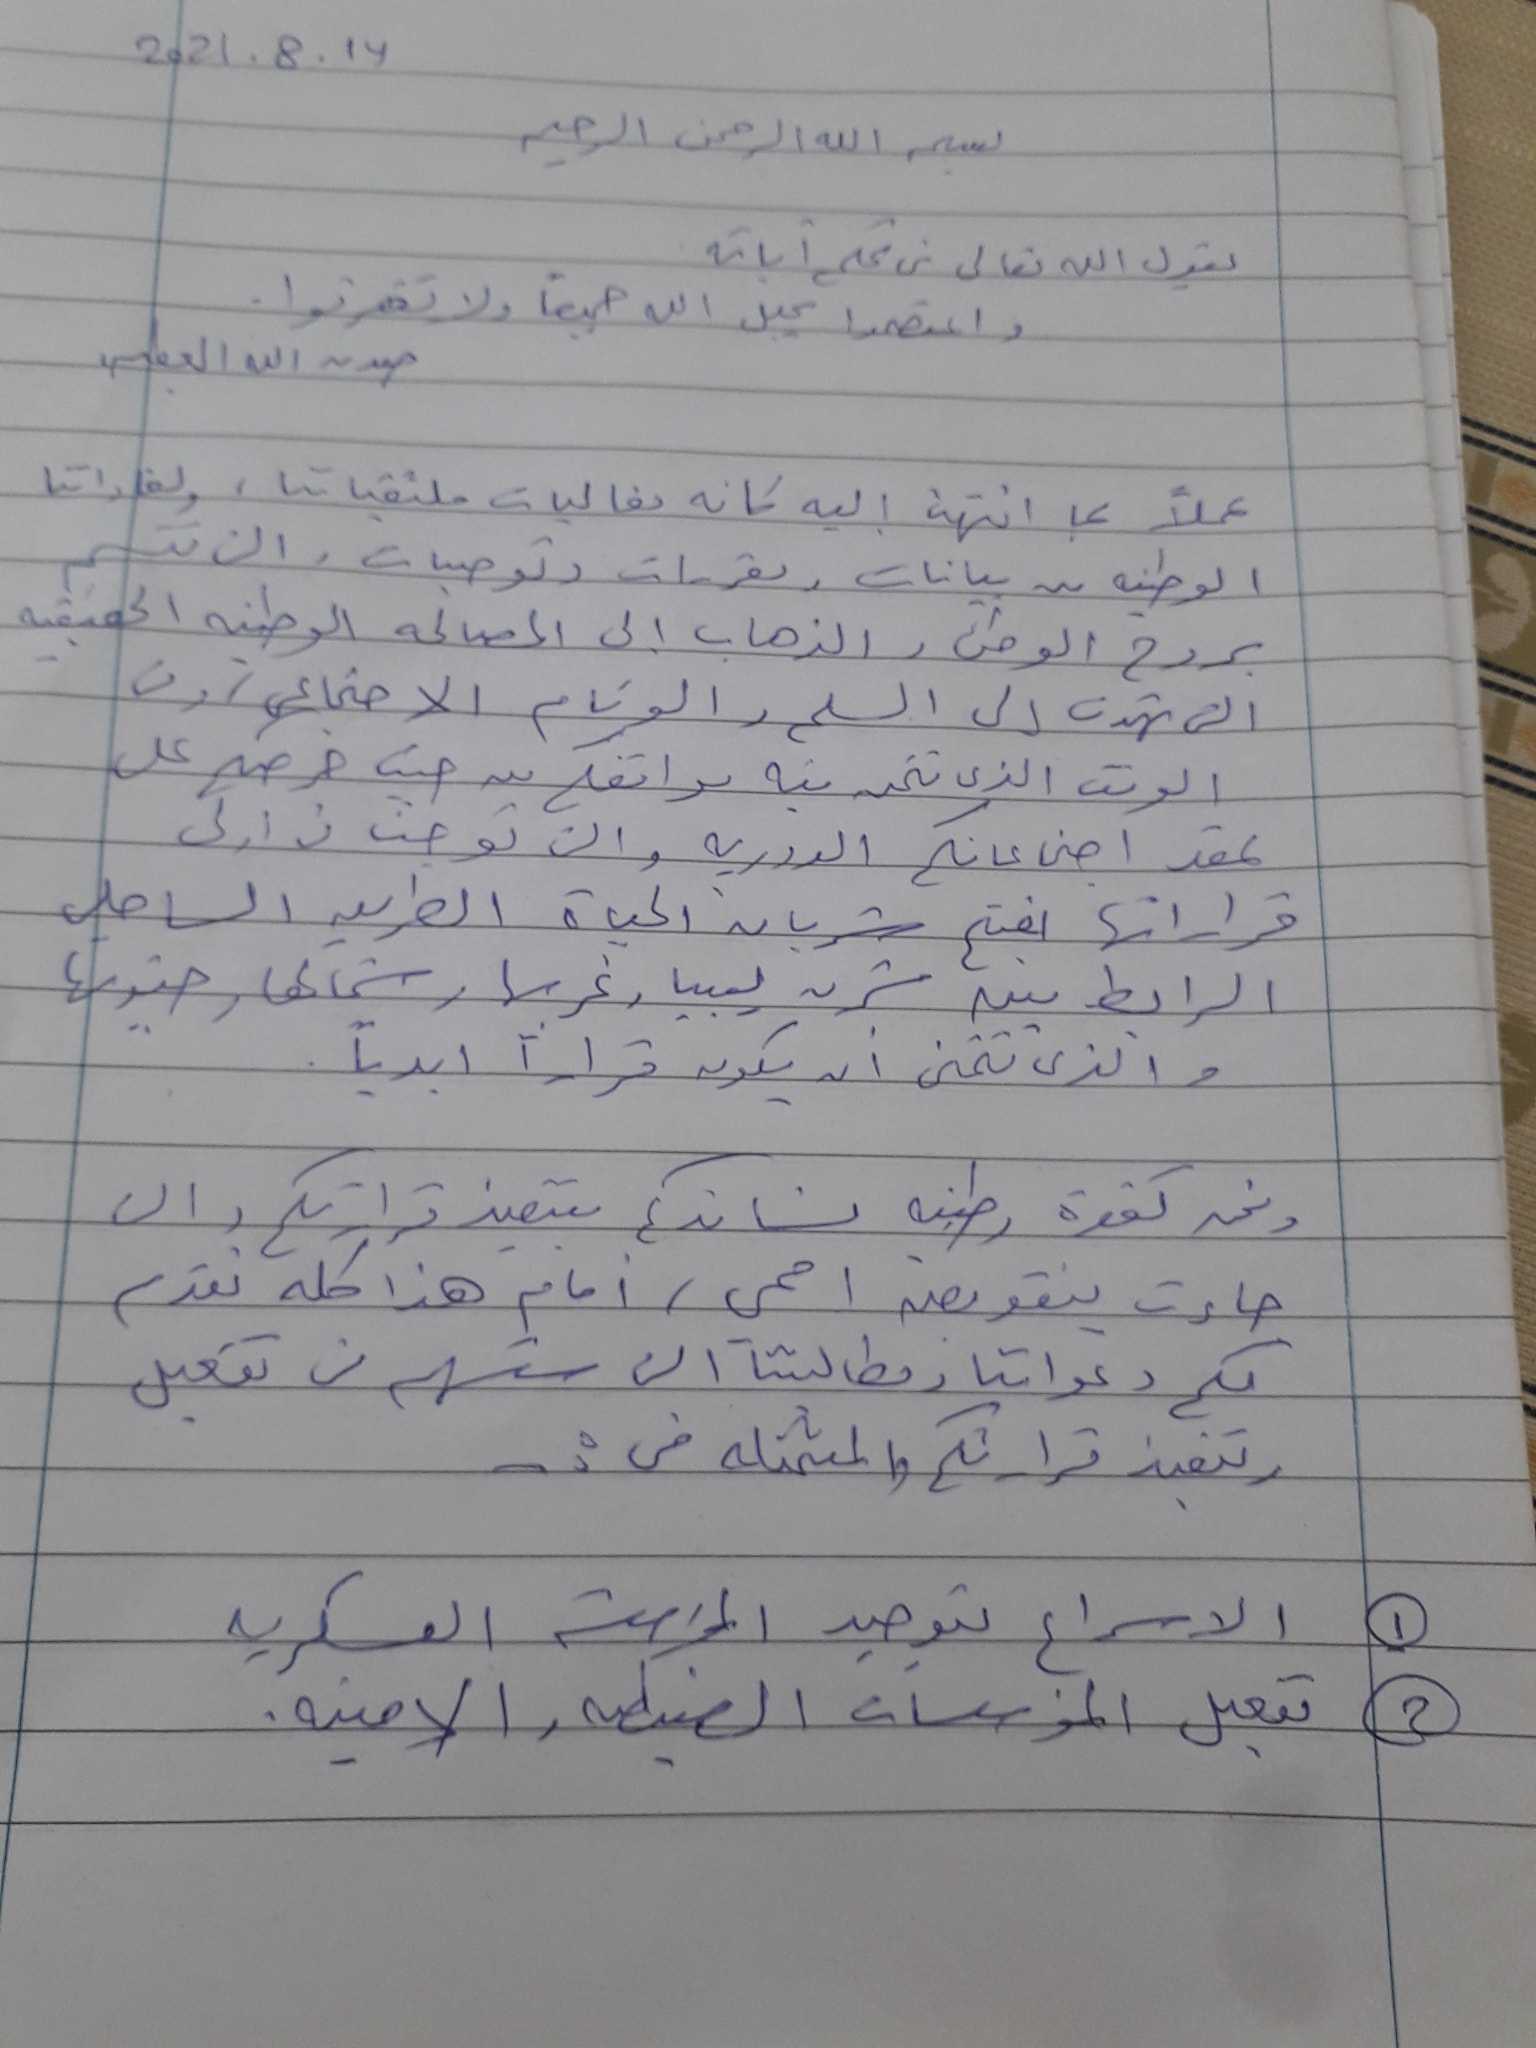 2021.8.14
بسم الله الرحمن الرحيم
يقول الله تعالى في محكم آياته
واعتصموا بحبل الله جميعاً ولا تفرقوا.
صدق الله العظيم
عملاً بما انتهت إليه كافه فعاليات ملتقياتنا، ولقاءاتنا
الوطنيه من بيانات ومقررات وتوصيات، التي تتسم
بروح الوطن والذهاب إلى المصالحه الوطنيه الحقيقيه
التي تهدف إلى السلم والوئام الاجتماعي، وفي
الوقت الذي نثمن فيه مواقفكم من حيث حرصكم على
عقد اجتماعاتكم الدوريه والتي توجت في اولى
قراراتها بفتح شريان الحياة الطريق الساحلي
الرابط بين شرق ليبيا وغربها وشمالها وجنوبها
والذي نتمنى أن يكون قراراً ابدياً.
ونحن كقوة وطنيه نساندكم بتنفيذ قراراتكم والتي
جاءت بتفويض اممي، أمام هذا كله نقدم
لكم دعواتنا ومطالبتنا التي ستسهم في تفعيل
وتنفيذ قراراتكم والمتمثله في :ـ
① الاسراع بتوحيد المؤسسة العسكريه
② تفعيل المؤسسات الضبطيه والامنيه.